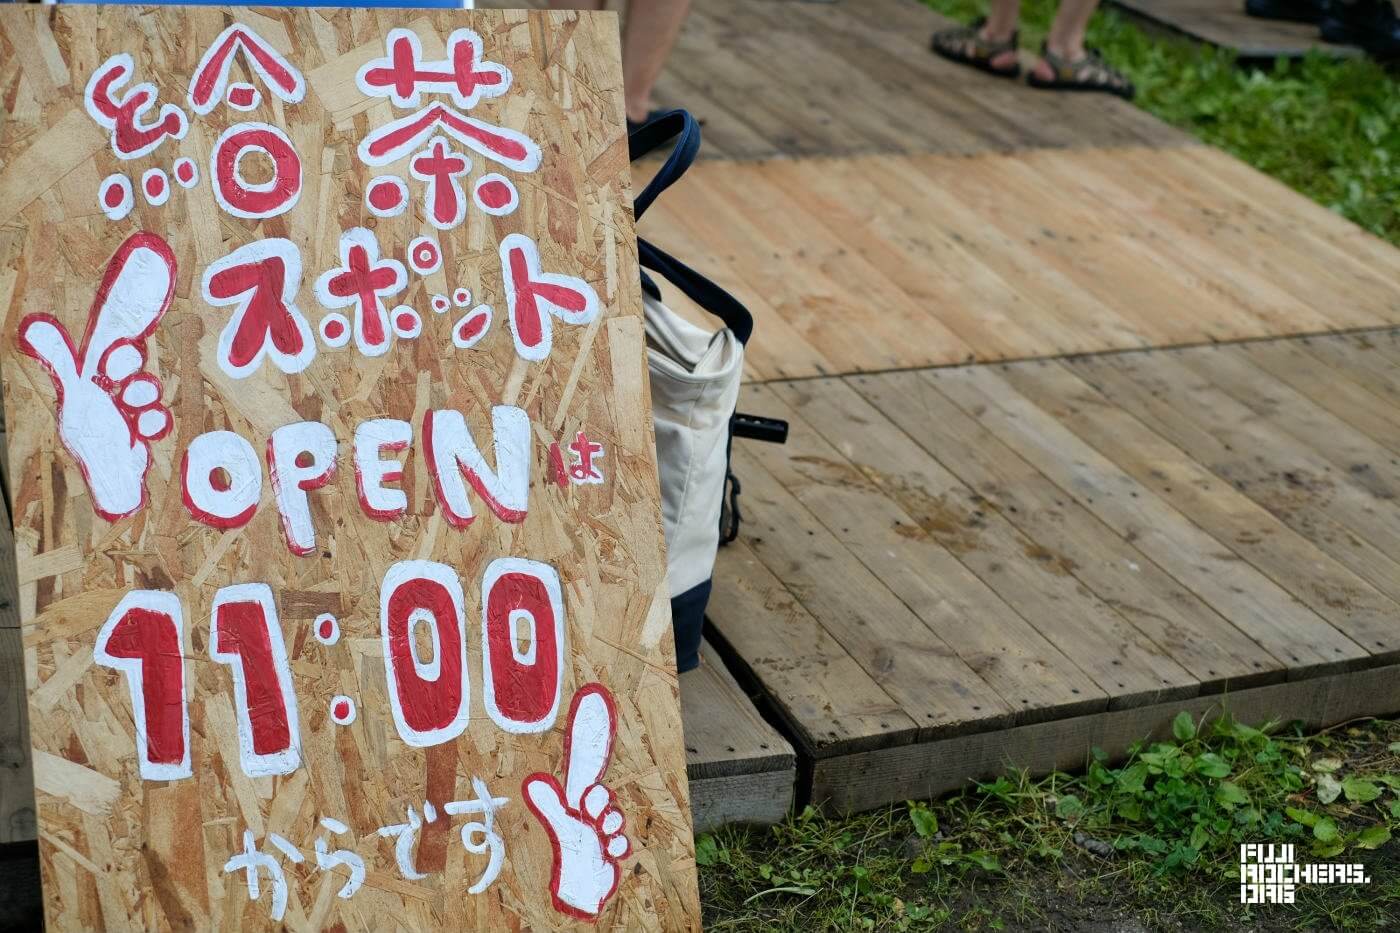 給茶
スポット
OPENは
11:00
からです
FUJI
ROCKERS.
ORG